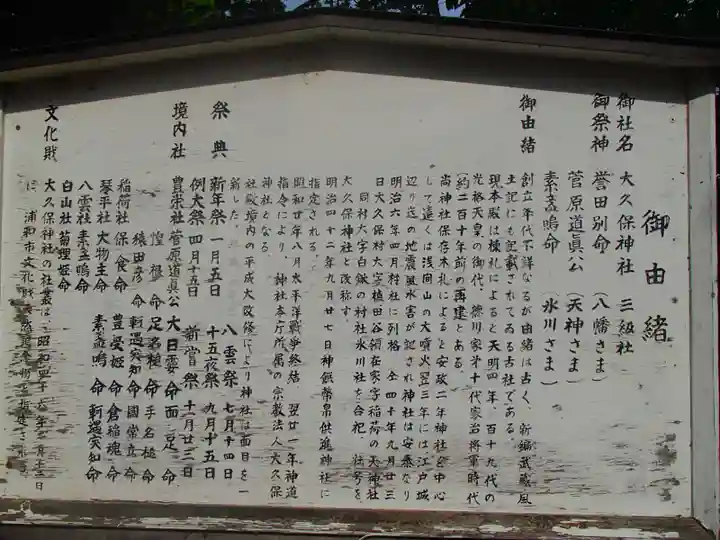 御由緒
御社名 大久保神社 三級社
御祭神 誉田別命 (八幡さま)
菅原道眞公 (天神さま)
素盞嗚命 (氷川さま)
御由緒
創立年代不詳なるが由緒は古く、新編武蔵風
土記にも記載されてゐる古社である。
現本殿は棟札によると天明四年、百十九代の
光格天皇の御代、徳川家第十代家治将軍時代
(約二百十年前)の再建とある。
尚神社保存木札によると安政二年神社を中心
として遠くは浅間山の大噴火翌三年には江戸城
辺り迄の地震風水害が記され神社は安泰なり
明治六年四月村社に列格 仝四十年九月廿三
日大久保村大字植田谷領在家字稲荷の天神社
同村大字白鍬の村社氷川社を合祀 社号を
大久保神社と改称す。
明治四十二年九月廿七日神饌幣帛供進神社に
指定される。
昭和廿年八月太平洋戦争終結 翌廿一年神道
指令により、神社本庁所属の宗教法人大久保
神社となる
社殿境内の平成大改修により神社は面目を一
新した。
祭典 新年祭 一月五日 八雲祭 七月十四日
例大祭 四月十五日 十五夜祭 九月十五日
新嘗祭 十一月廿三日
境内社 豊栄社 菅原道眞公 大日孁命 面足命
惶根命 足名稚命 手名槌命
猿田彦命 軻遇突知命 國常立命
稲荷社 保食命 豊受姫命 倉稲魂命
琴平社 大物主命 素盞嗚命 軻遇突知命
八雲社 素盞嗚命
白山社 菊理姫命
文化財 大久保神社の社叢は、昭和四十 年 月十 日
に、浦和市文化財 天然 物 指定され